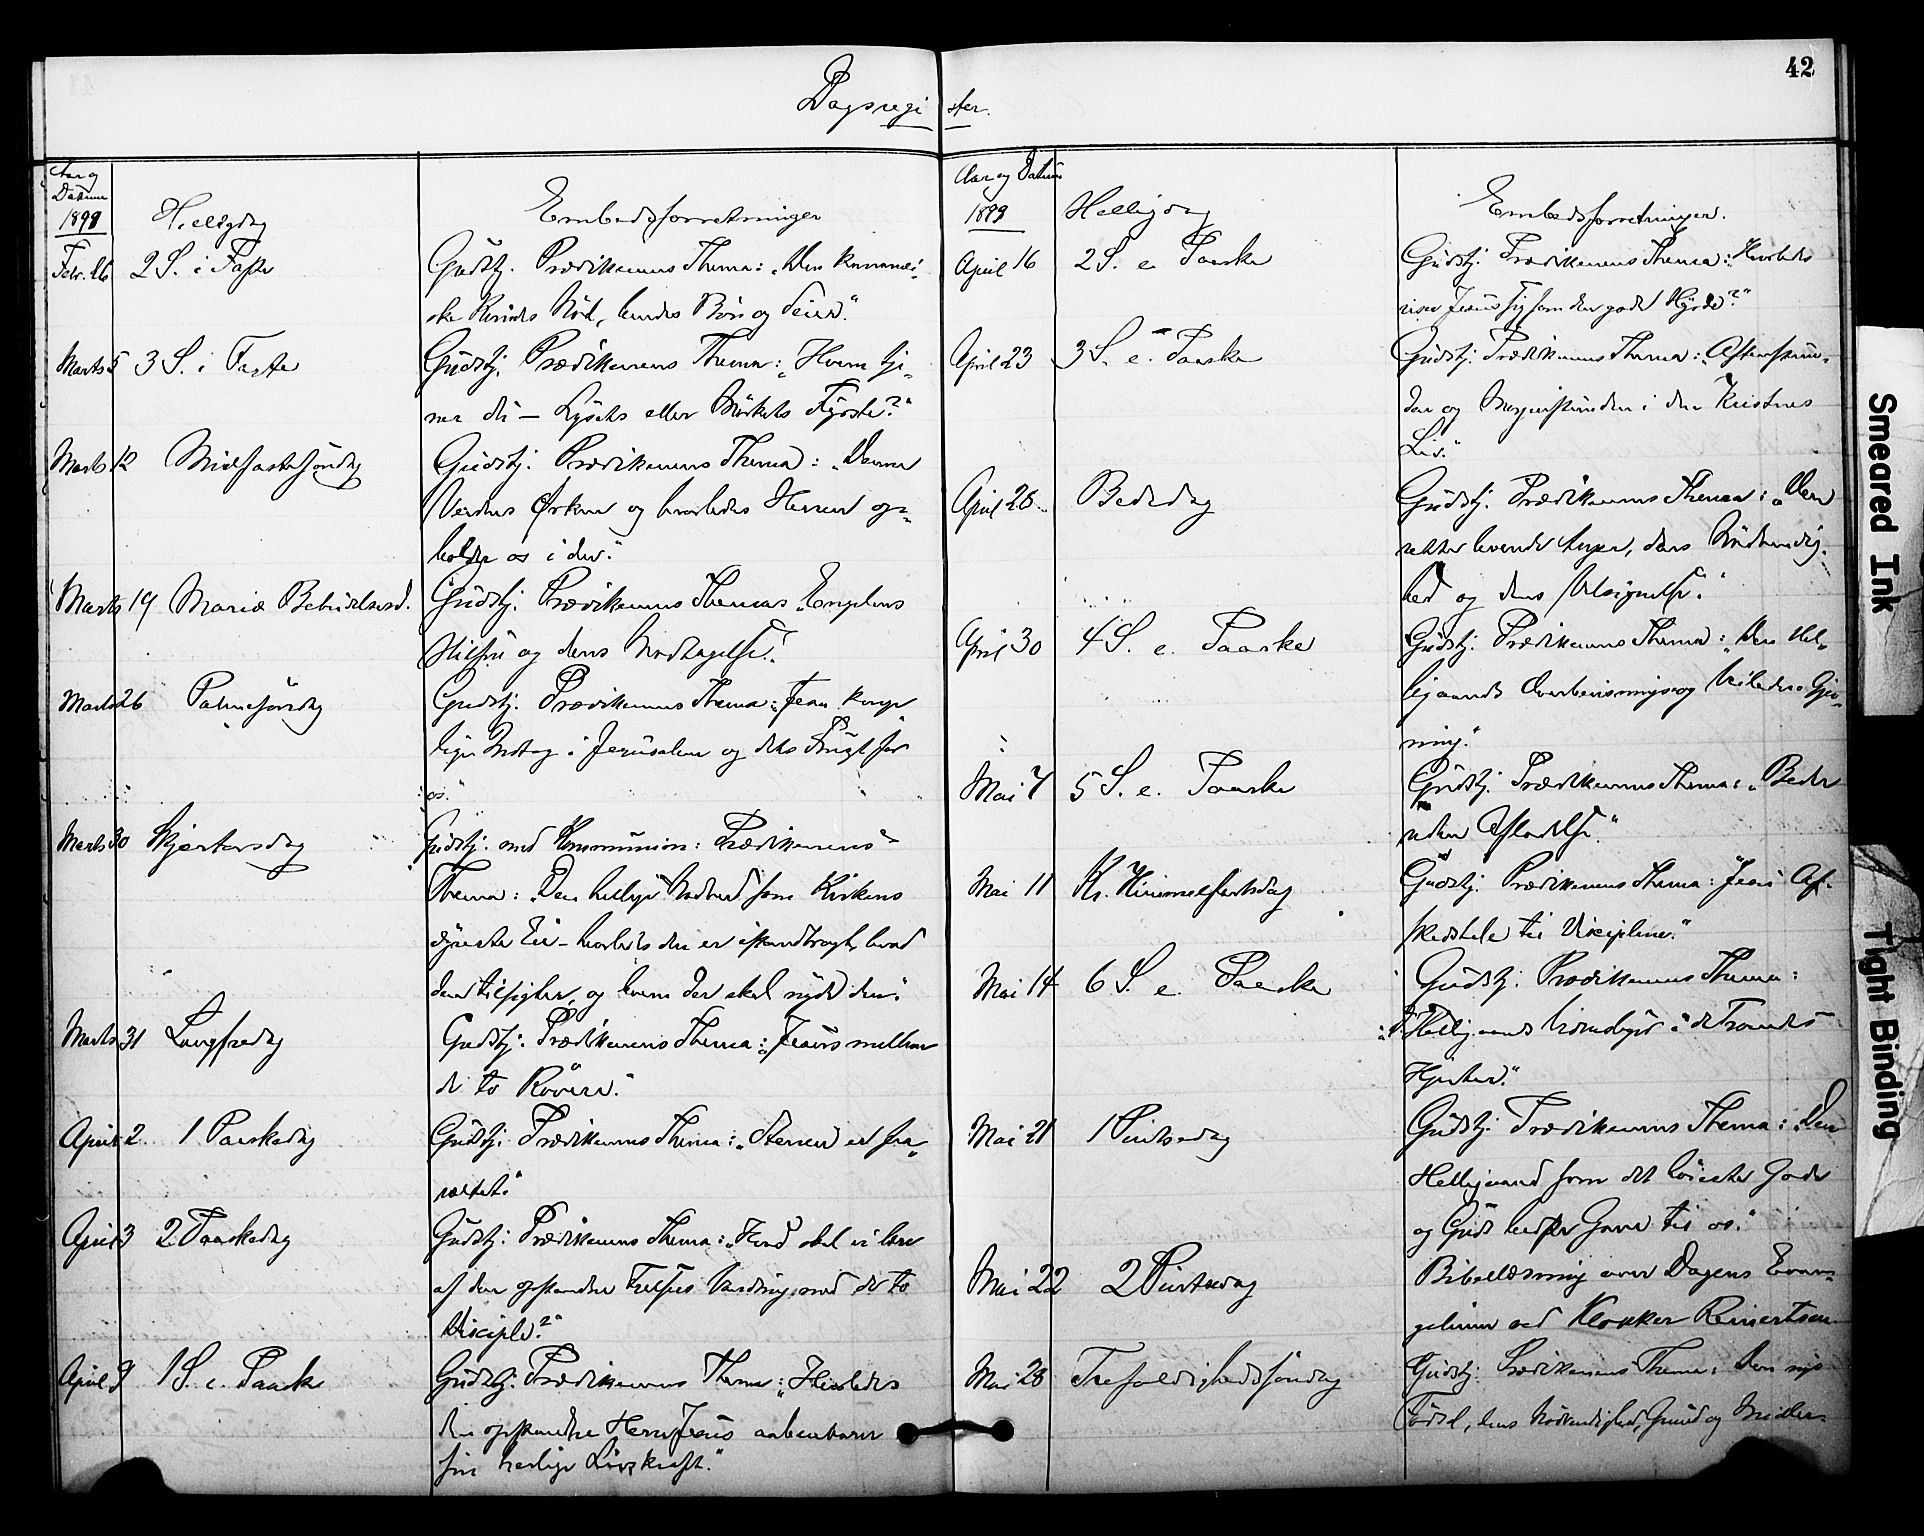 42
Dagsregister.
Aar og
Datum
1899
Helligdag
Embedsforretninger
Febr. 26 2 S. i Faste Gudstj. Prædikenens Thema: „Den kananæi-
ske Kvindes Nöd, hendes Bön og Seier."
Marts 5 3 S. i Faste Gudstj. Prædikenens Thema: „Hvem tje-
ner du – Lysets eller Mörkets Fyrste?"
Marts 12 Midfastesöndag Gudstj. Prædikenens Thema: „Denne
Verdens Örken og hvorledes Herren op-
holder os i den."
Marts 19 Mariæ Bebudelsesd. Gudstj. Prædikenens Thema: „Engelens
Hilsen og dens Modtagelse."
Marts 26 Palmesöndag Gudstj. Prædikenens Thema: „Jesu konge-
lige Indtog i Jerusalem og dets Frugt for
os."
Marts 30 Skjærtorsdag Gudstj. med Kommunion: Prædikenens
Thema: „Den hellige Nadver som Kirkens
dyreste Eie – hvorledes den er istandbragt, hvad
den tilsigter, og hvem der skal nyde den."
Marts 31 Langfredag Gudstj. Prædikenens Thema: „Jesus mellem
de to Rövere."
April 2 1 Paaskedag Gudstj. Prædikenens Thema: „Stenen er fra-
væltet."
April 3 2 Paaskedag Gudstj. Prædikenens Thema: „Hvad skal vi lære
af den opstandne Frelsers Vandring med de to
Disciple?"
April 9 1 S. e. Paaske Gudstj. Prædikenens Thema: „Hvorledes
den opstandne Herre Jesus aabenbarer
sin herlige Livskraft."
Aar og Datum
1899
Helligdag
Embedsforretninger.
April 16 2 S. e. Paaske Gudstj. Prædikenens Thema: „Hvorledes
viser Jesus sig som den gode Hyrde?"
April 23 3 S. e. Paaske Gudstj. Prædikenens Thema: „Aftenstun-
den og Morgenstunden i den Kristnes
Liv."
April 28 Bededag Gudstj. Prædikenens Thema: „Den
rette levende Anger, dens Nödvendig-
hed og dens Velsignelse."
April 30 4 S. e. Paaske Gudstj. Prædikenens Thema: „Den Hel-
ligaands Overbevisnings og Veiledere Gjer-
ning."
Mai 7 5 S. e. Paaske Gudstj. Prædikenens Thema: „Beder
uden Afladelse."
Mai 11 Kr. Himmelfartsdag Gudstj. Prædikenens Thema: „Jesu Af-
skedstale til Disciplene."
Mai 14 6 S. e. Paaske Gudstj. Prædikenens Thema:
„D. Helligaands Vidnesbyrd i de Troendes
Hjerter."
Mai 21 1 Pintsedag Gudstj. Prædikenens Thema: „Den
Helligaand som det höieste Gode
og Guds bedste Gave til os."
Mai 22 2 Pintsedag Bibellæsning over Dagens Evan-
gelium ved Klokker Reinertsen
Mai 28 Trefoldighedssöndag Gudstj. Prædikenens Thema: Den nye
Födsel, dens Nödvendighed, Grund og Midler.
Smeared Ink
Tight Binding